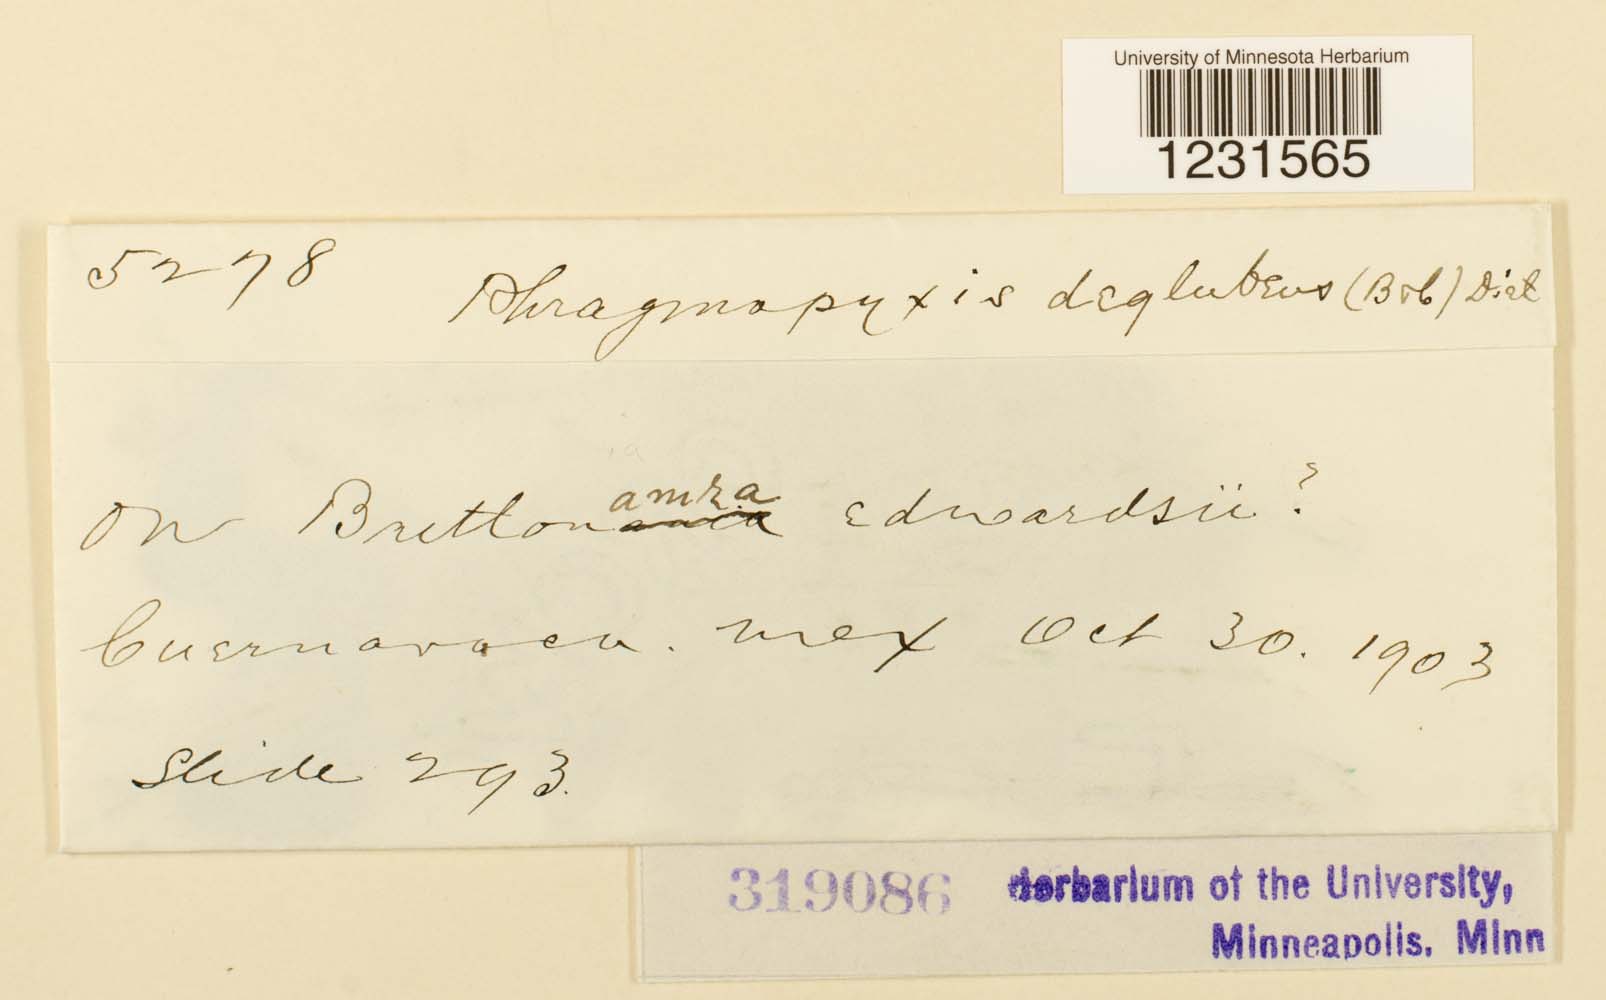 University of Minnesota Herbarium
1231565
5278 Phragmopyxis deglubens (B&b) Diet
on Brittonamra edwardsii?
Cuernavaca. Mex Oct 30. 1903
Slide 293.
319086 Herbarium of the University,
Minneapolis. Minn